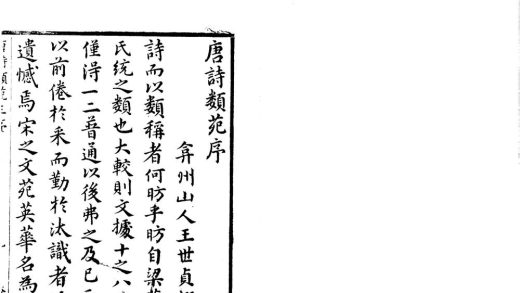 唐詩類苑序
弇州山人王世貞
詩而以類稱者何昉乎昉自梁
氏統之類也大較則文據十之八
僅淂一二普通以後弗之及已
以前倦於采而勤於汰識者
遺憾焉宋之文苑英華名為